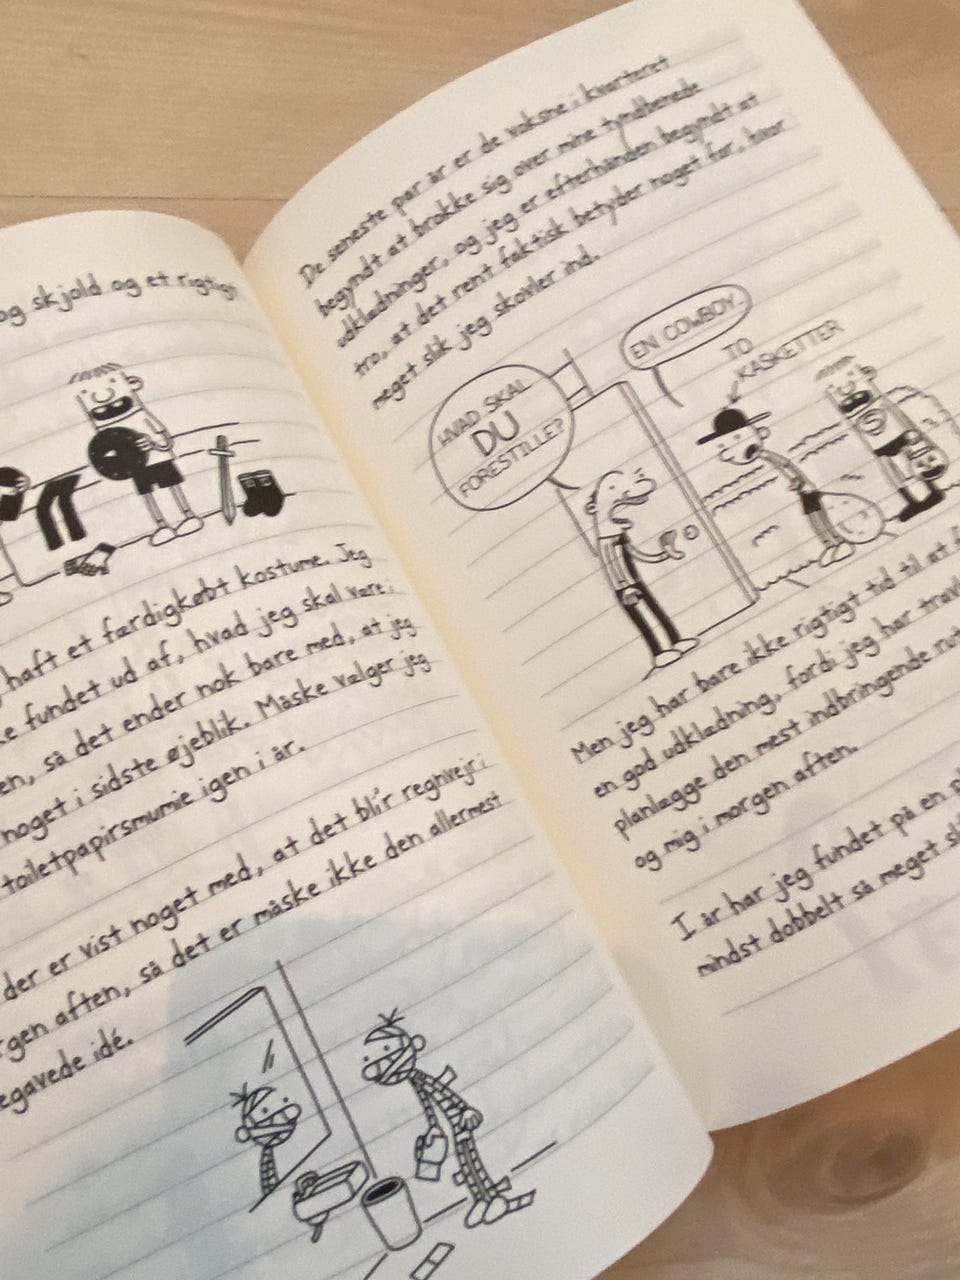 og skjold og et rigtigt
haft et færdigkøbt kostume. Jeg
fundet ud af, hvad jeg skal være i
så det ender nok bare med, at jeg
noget i sidste øjeblik. Måske vælger jeg
toiletpapirsmumie igen i år.
der er vist noget med, at det bli'r regnvejr i
aften, så det er måske ikke den allermest
idé.
De seneste par år er de voksne i kvarteret
begyndt at brokke sig over mine tyndbenede
udklædninger, og jeg er efterhånden begyndt at
tro, at det rent faktisk betyder noget for, hvor
meget slik jeg skovler ind.
HVAD SKAL
DU
FORESTILLE?
EN COWBOY.
TO
KASKETTER
Men jeg har bare ikke rigtigt tid til at
en god udklædning, fordi jeg har travlt
planlægge den mest indbringende
og mig i morgen aften.
I år har jeg fundet på en
mindst dobbelt så meget